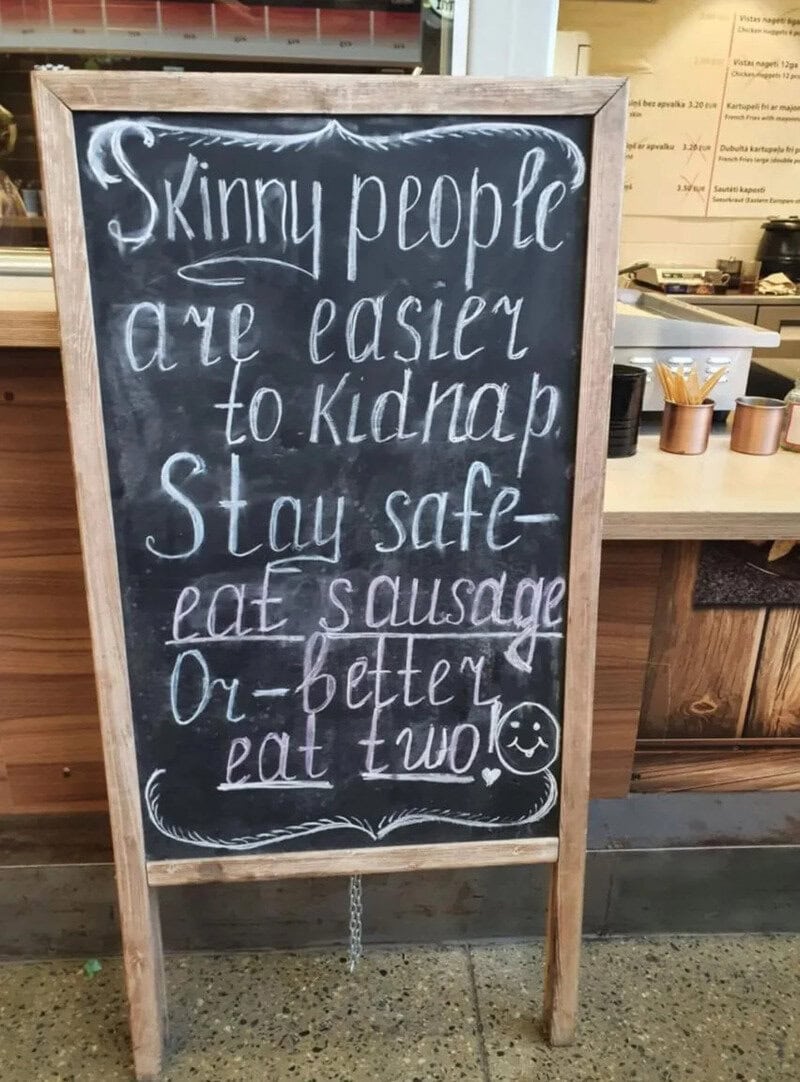 Skinny people
are easier
to kidnap.
Stay safe-
eat sausage
Or-better
eat two!
Vistas nageti 6ga
Chicken nuggets 6 p
Vistas nageti 12ga
Chicken nuggets 12 pc
bez apvalka 3.20 EUR
skin
Kartupeļi frī ar majon
French Fries with mayonn
ar apvalku 3.20 EUR
Dubultā kartupeļu frī p
French Fries large (double po
3.50 EUR
Sautēti kāposti
Saeurkraut (Eastern European-s